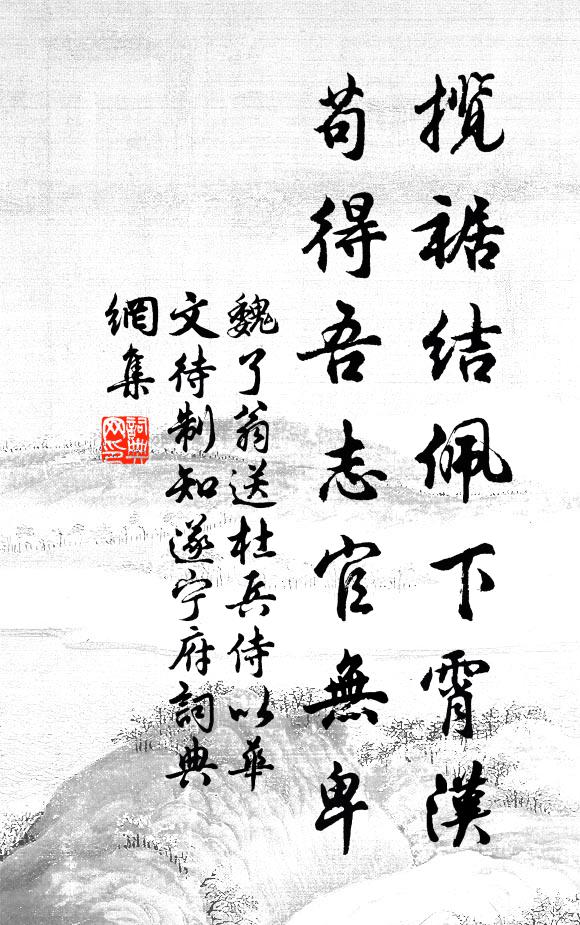 攬裾結佩下霄漢
苟得吾志官無卑
魏了翁送杜兵侍以華
文待制知遂宁府詞典
網集
詞典
网印